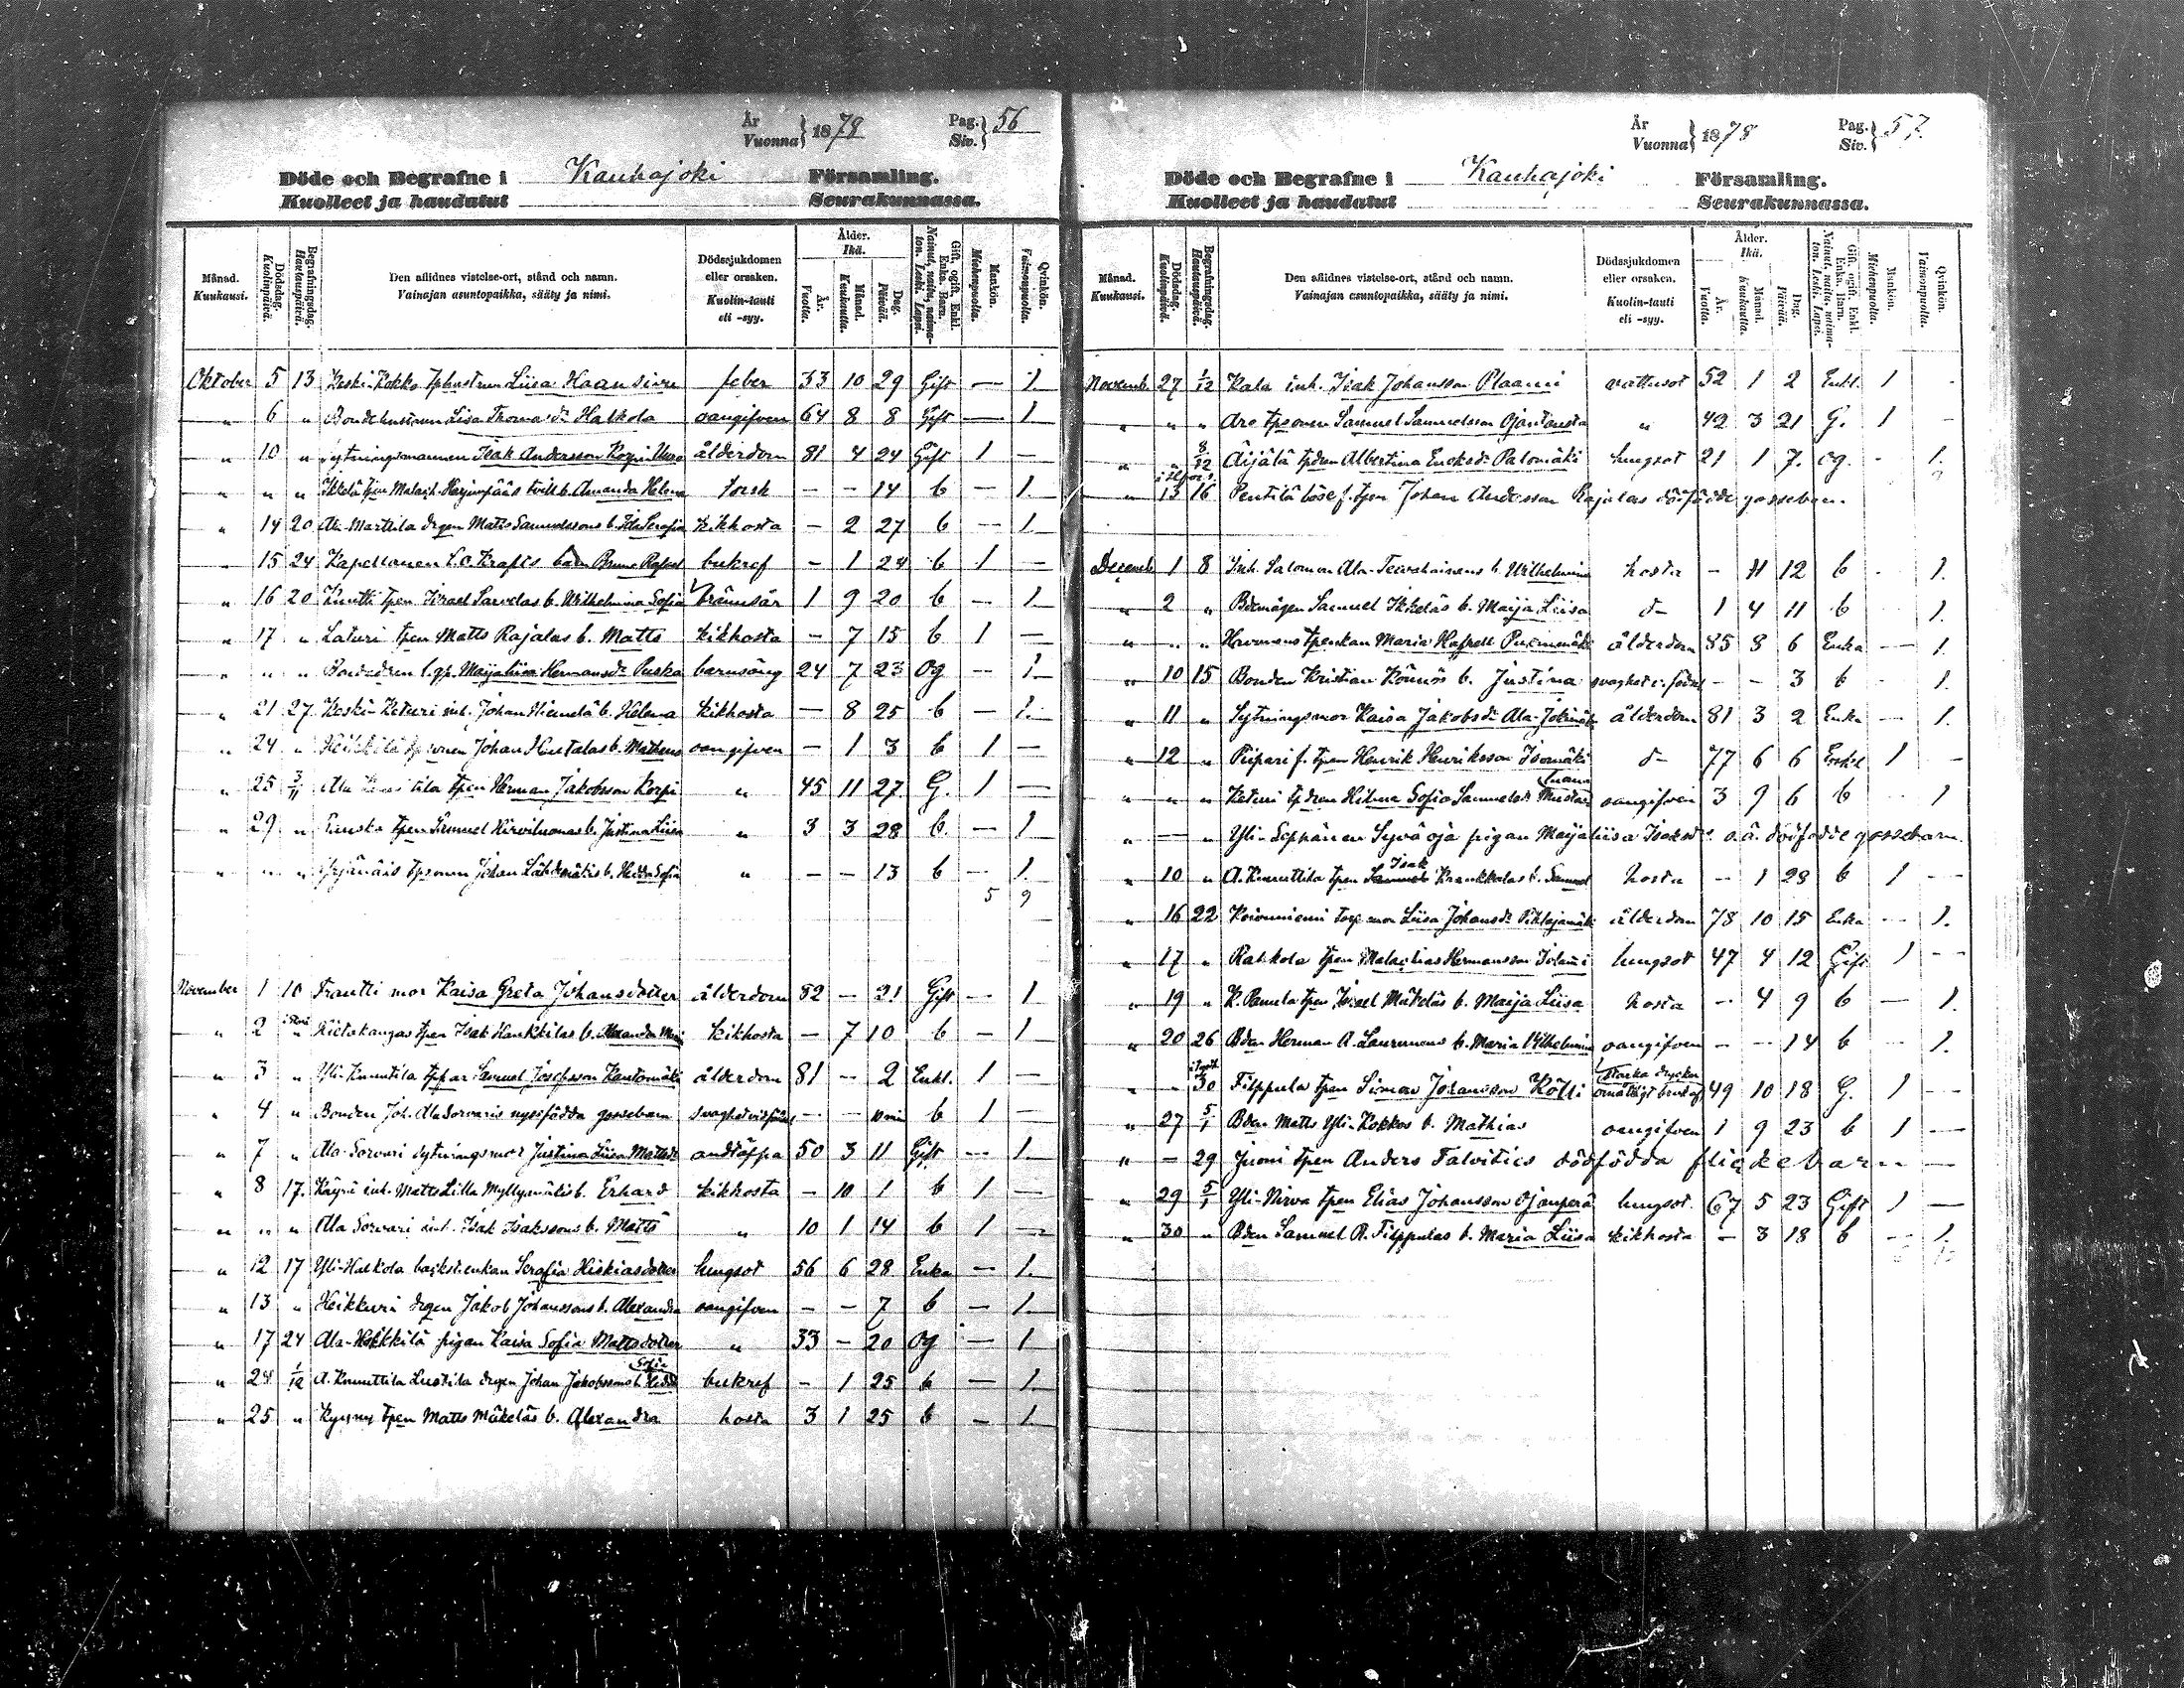 År Vuonna } 1878 Pag. Siv. } 56
Döde och Begrafne i Kauhajoki Församling.
Kuolleet ja haudatut Seurakunnassa.
Månad. Kuukausi. Dödsdag. Kuolinpäivä. Begrafningsdag. Hautauspäivä. Den aflidnes vistelse-ort, stånd och namn. Vainajan asuntopaikka, sääty ja nimi. Dödssjukdomen eller orsaken. Kuolin-tauti eli -syy. Ålder. Ikä. År. Vuotta. Månad. Kuukautta. Dag. Päivää. Gift, ogift, Enkl. Enka. Barn. Nainut, naitu, naimaton. Leski. Lapsi. Mankön. Miehenpuolta. Qvinkön. Vaimonpuolta.
Oktober 5 13 Keski-Kokko Liisa Haansivu feber 33 10 29 Gift — 1
" 6 " Bondehustrun Lisa Thomasdr Halkola oangifven 64 8 8 Gift — 1
" 10 " Sytningsmannen Isak Andersson 	ålderdom 81 4 24 Gift 1 —
" " " Ikkelä tpen Malach. Harjunpääs b. Amanda Helena torsk — — 14 b — 1
" 14 20 Ala-Marttila drgen Matts Samuelssons b. Ida Serafia kikhosta — 2 27 b — 1
" 15 24 Kapellanen L. O. Krafts barn Bruno Rafael bukref — 1 24 b 1 —
" 16 20 Knutti tpen Israel Sarvelas b. Wilhelmina Sofia brännsår 1 9 20 b — 1
" 17 " Laturi tpen Matts Rajalas b. Matts kikhosta — 7 15 b 1 —
" " " Maijaliisa Hermansdr Puska barnsäng 24 7 23 Og — 1
" 21 27 Keski-Keturi inh. Johan Hiemelä b. Helena kikhosta — 8 25 b — 1
" 24 " Heikkilä Johan b. Mathias oangifven — 1 3 b 1 —
" 25 3/11 Ala tpen Herman Jakobsson Korpi " 45 11 27 G. 1 —
" 29 " tpen Samuel Hirviluomas b. Justina Liisa " 3 3 28 b. — 1
" " " Johan Lähdemäkis b. Hedda Sofia " — — 13 b — 1
5 9
November 1 10 Trantti mor Kaisa Greta Johansdotter ålderdom 82 — 21 Gift — 1
" 2 " Hietakangas tpen Isak Hankkilas b. kikhosta — 7 10 b — 1
" 3 " Yli-Knuutila Samuel Josefsson Kantomäki ålderdom 81 — 2 Enkl. 1 —
" 4 " Bonden Joh. Ala Sorvaris nyssfödda gossebarn — — b 1 —
" 7 " Ala-Sorvari sytningsmor Justina Liisa Mattsdr andtäppa 50 3 11 Gift — 1
" 8 17. Käyrä inh. Matts Lilla Myllymäkis b. Erhard kikhosta — 10 1 b 1 —
" " " Ala Sorvari inh. Isak Isakssons b. Matts " 10 1 14 b 1 —
" 12 17 Yli-Halkola backst.enkan Serafia Hiskiasdotter lungsot 56 6 28 Enka — 1.
" 13 " Heikkuri drgen Jakob Johanssons b. Alexandra oangifven — — 7 b — 1.
" 17 24 Ala-Heikkilä pigan Kaisa Sofia Mattsdotter " 33 — 20 Og — 1
" 24 1/12 A. Knuuttila Lustila drgen Johan Jakobssons b. Hedda Sofia bukref — 1 25 b — 1.
" 25 " Kyyny tpen Matts Mäkeläs b. Alexandra hosta 3 1 25 b — 1
År Vuonna } 1878 Pag. Siv. } 57.
Döde och Begrafne i Kauhajoki Församling.
Kuolleet ja haudatut Seurakunnassa.
Månad. Kuukausi. Dödsdag. Kuolinpäivä. Begrafningsdag. Hautauspäivä. Den aflidnes vistelse-ort, stånd och namn. Vainajan asuntopaikka, sääty ja nimi. Dödssjukdomen eller orsaken. Kuolin-tauti eli -syy. Ålder. Ikä. År. Vuotta. Månad. Kuukautta. Dag. Päivää. Gift, ogift, Enkl. Enka. Barn. Nainut, naitu, naimaton. Leski. Lapsi. Mankön. Miehenpuolta. Qvinkön. Vaimonpuolta.
Novemb. 27 1/12 Kala inh. Isak Johansson Plaami vattusot 52 1 2 Enkl. 1 -
" " " Aro Samuel Samuelsson Ojantausta " 42 3 21 G. 1 -
" 8/12 Äijälä Albertina Ericksdr Palomäki lungsot 21 1 7. og. - 1.
" 13 16 Pentilä f. tpen Johan Andersson Rajalas dödfödde gossebarn.
Decemb. 1 8 Inh. Salomon b. Wilhelmina hosta - 11 12 b - 1.
" 2 " Samuel Ikkeläs b. Maija Liisa d- 1 4 11 b - 1.
" " " tpenkan Maria ålderdom 85 8 6 Enka - 1.
" 10 15 Bonden Kristian Könnös b. Justina svaghet v. födsel - - 3 b - 1.
" 11 " Sytningsmor Kaisa Jakobsdr Ala-Jokimäki ålderdom 81 3 2 Enka - 1.
" 12 " Piipari f. tpen Henrik Henriksson Isomäki d- 77 6 6 Enkl 1 -
" " " Keturi Hilma Sofia Samuelsdr oangifven 3 9 6 b - 1
" — " Yli-Seppänen Syväoja pigan Maijaliisa Isaksdr o. ä. dödfödde gossebarn.
" 10 " A. Knuuttila tpen Isak Krankkalas b. Samuel hosta - 1 28 b 1 -
" 16 22 Koivuniemi mor Liisa Johansdr Pihlajamäki ålderdom 78 10 15 Enka - 1.
" 17 " Rahkola tpen Malachias Hermansson lungsot 47 4 12 Gift 1 -
" 19 " K. Panula tpen Israel Mäkeläs b. Maija Liisa hosta - 4 9 b - 1.
" 20 26 Bden Herman A. Laurunens b. Maria Wilhelmina oangifven - - 14 b - 1.
" - 30 Filppula tpen Simon Johansson Kölli starka drycker omåttligt bruk af 49 10 18 G. 1 -
" 27 5/1 Bden Matts Yli-Kokkos b. Mathias oangifven 1 9 23 b 1 -
" - 29 Juoni tpen Anders Talvities dödfödda flickebarn -
" 29 5/1 Yli-Nirva tpen Elias Johansson Ojanperä lungsot. 67 5 23 Gift 1 -
" 30 " Bden Samuel R. Filppulas b. Maria Liisa kikhosta - 3 18 b - 1.